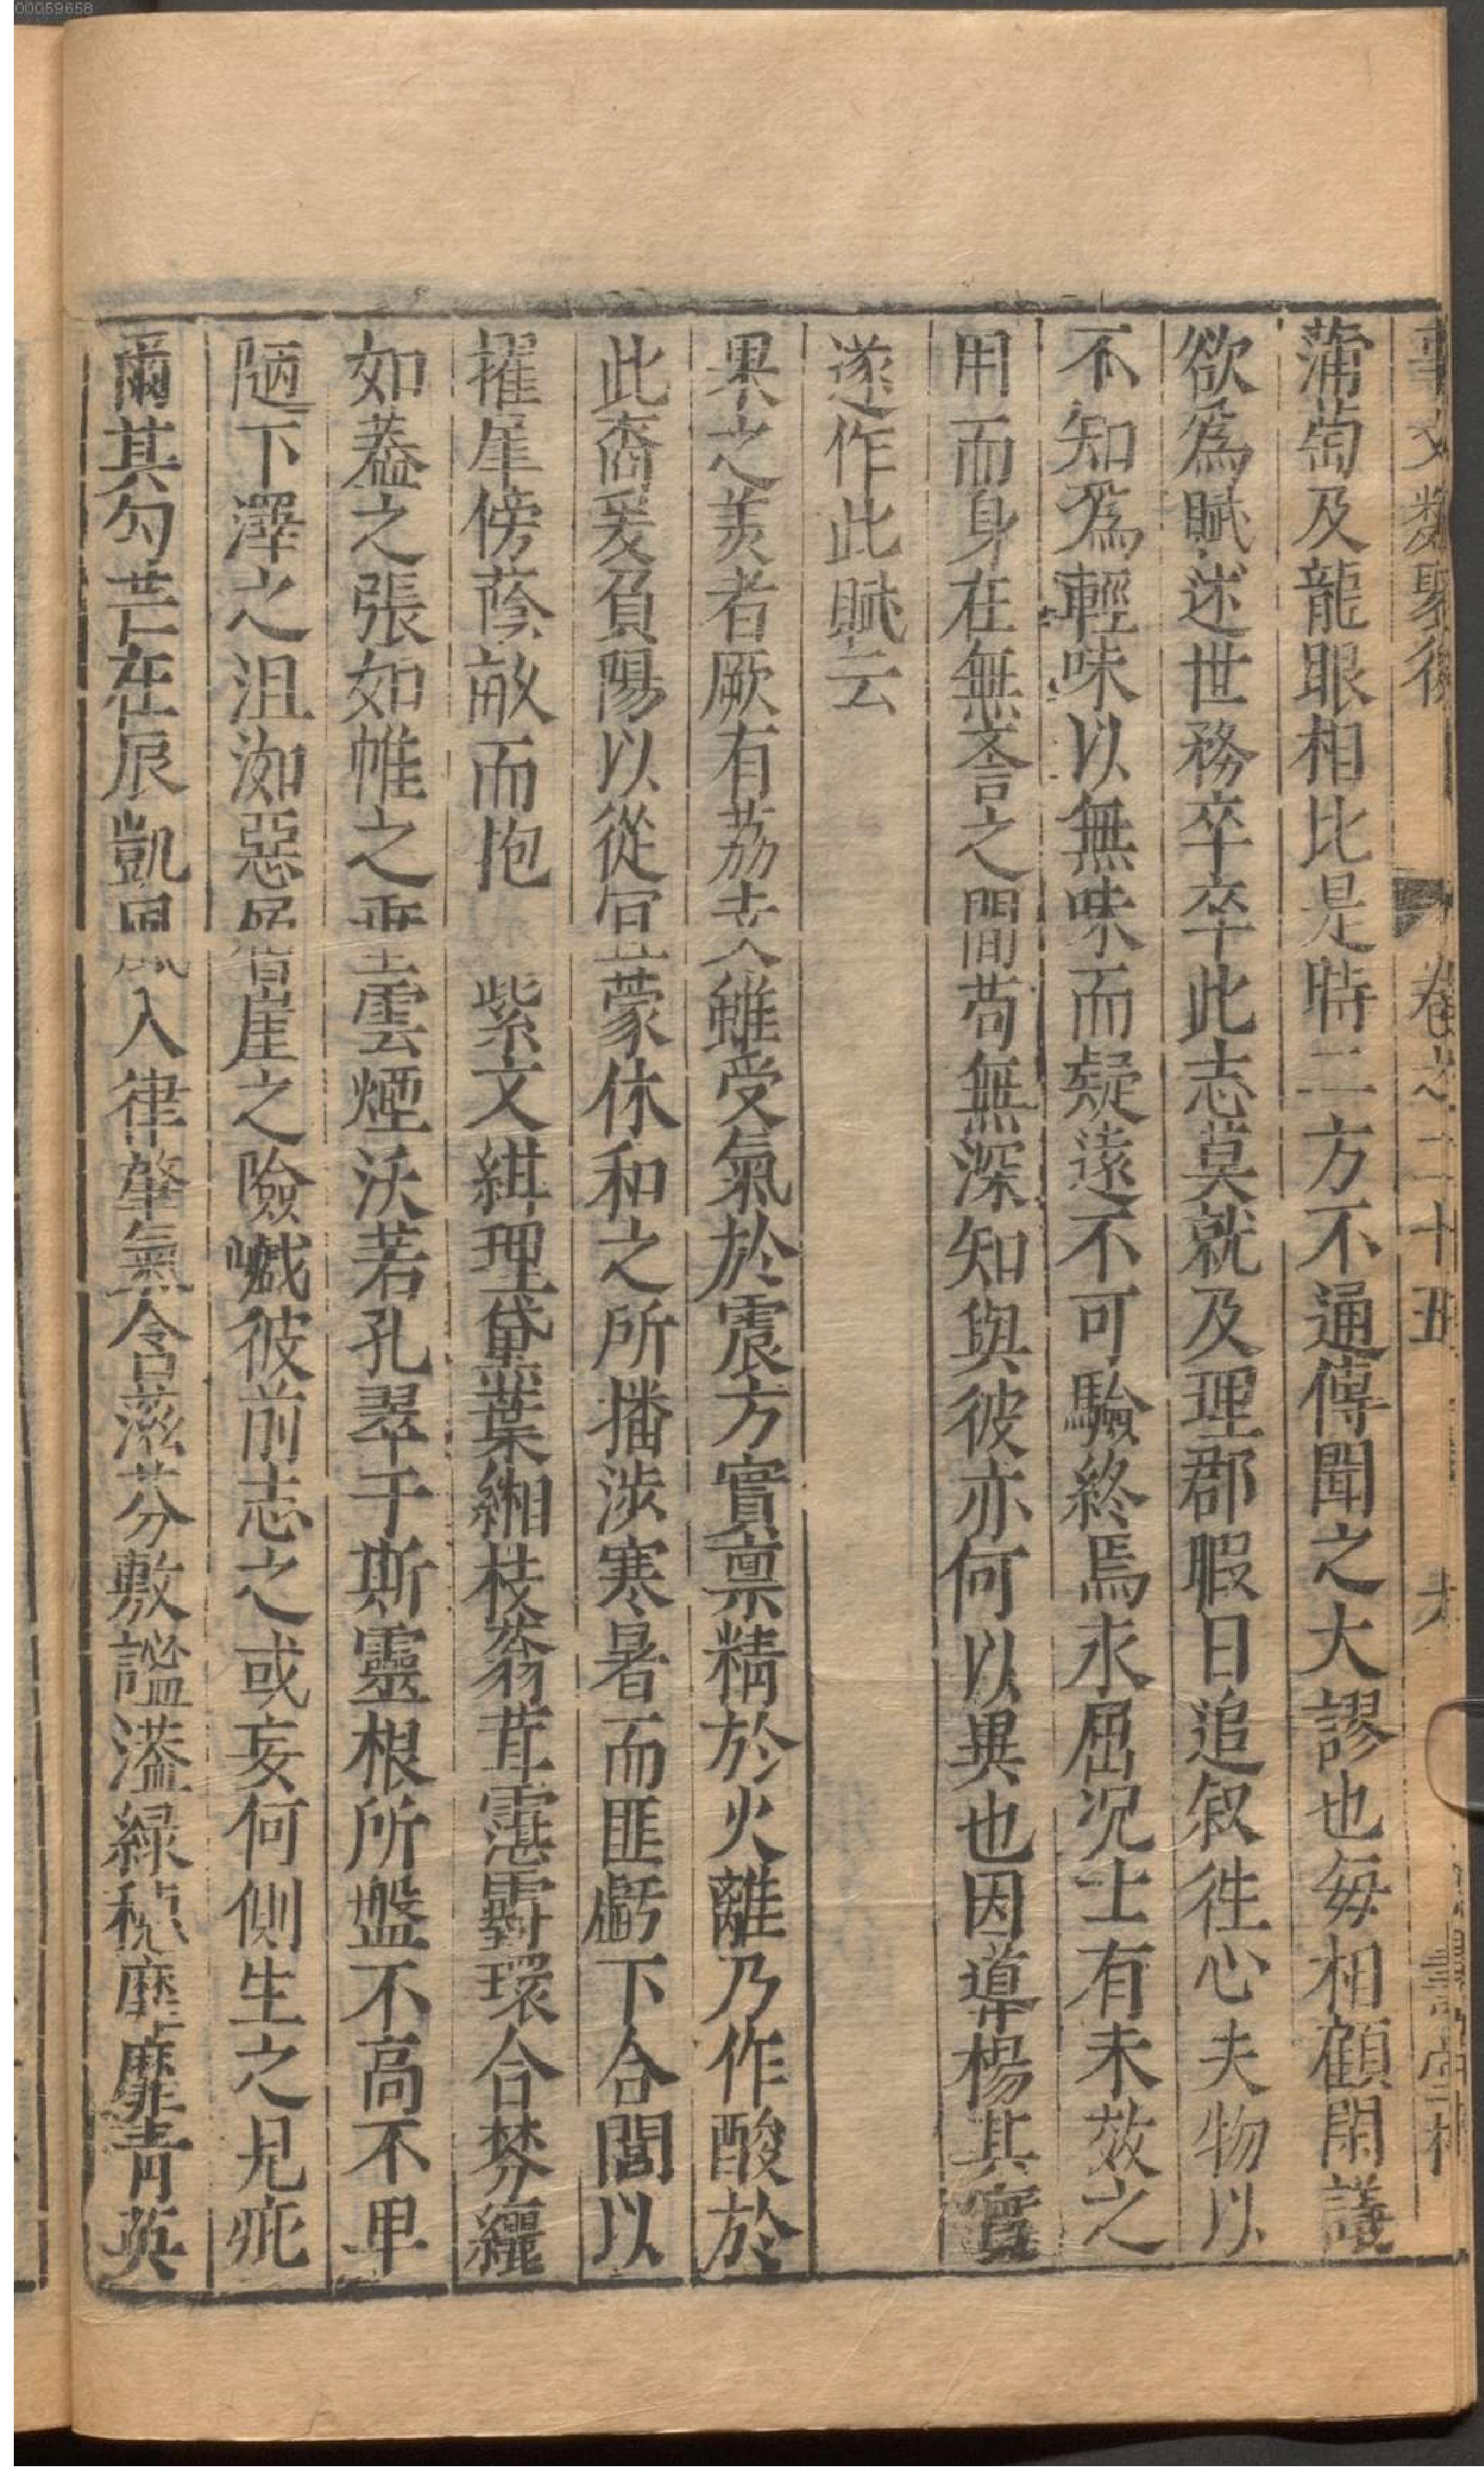 00059658
事文類聚後 卷之二十五
蒲萄及龍眼相比是時二方不通傳聞之大謬也每相顧閑議
欲爲賦述世務卒卒此志莫就及理郡暇日追叙徃心夫物以
不知爲輕味以無味而疑遠不可驗終焉永屈况士有未效之
用而身在無荅之間苟無深知與彼亦何以異也因導楊其實
遂作此賦云
果之美者厥有荔支雖受氣於震方實禀精於火離乃作酸於
此裔爰負陽以從宜蒙休和之所播涉寒暑而匪虧下合圍以
擢本傍蔭畝而抱 紫文紺理黛葉緗枝蓊茸霮䨴環合棼纚
如葢之張如帷之垂雲煙沃若孔翠于斯靈根所盤不高不卑
陋下澤之沮洳惡層崖之險巇彼前志之或妄何側生之見疵
爾其勾芒在辰凱風入律肇氣含滋芬敷謐溢緑穗靡靡靑英